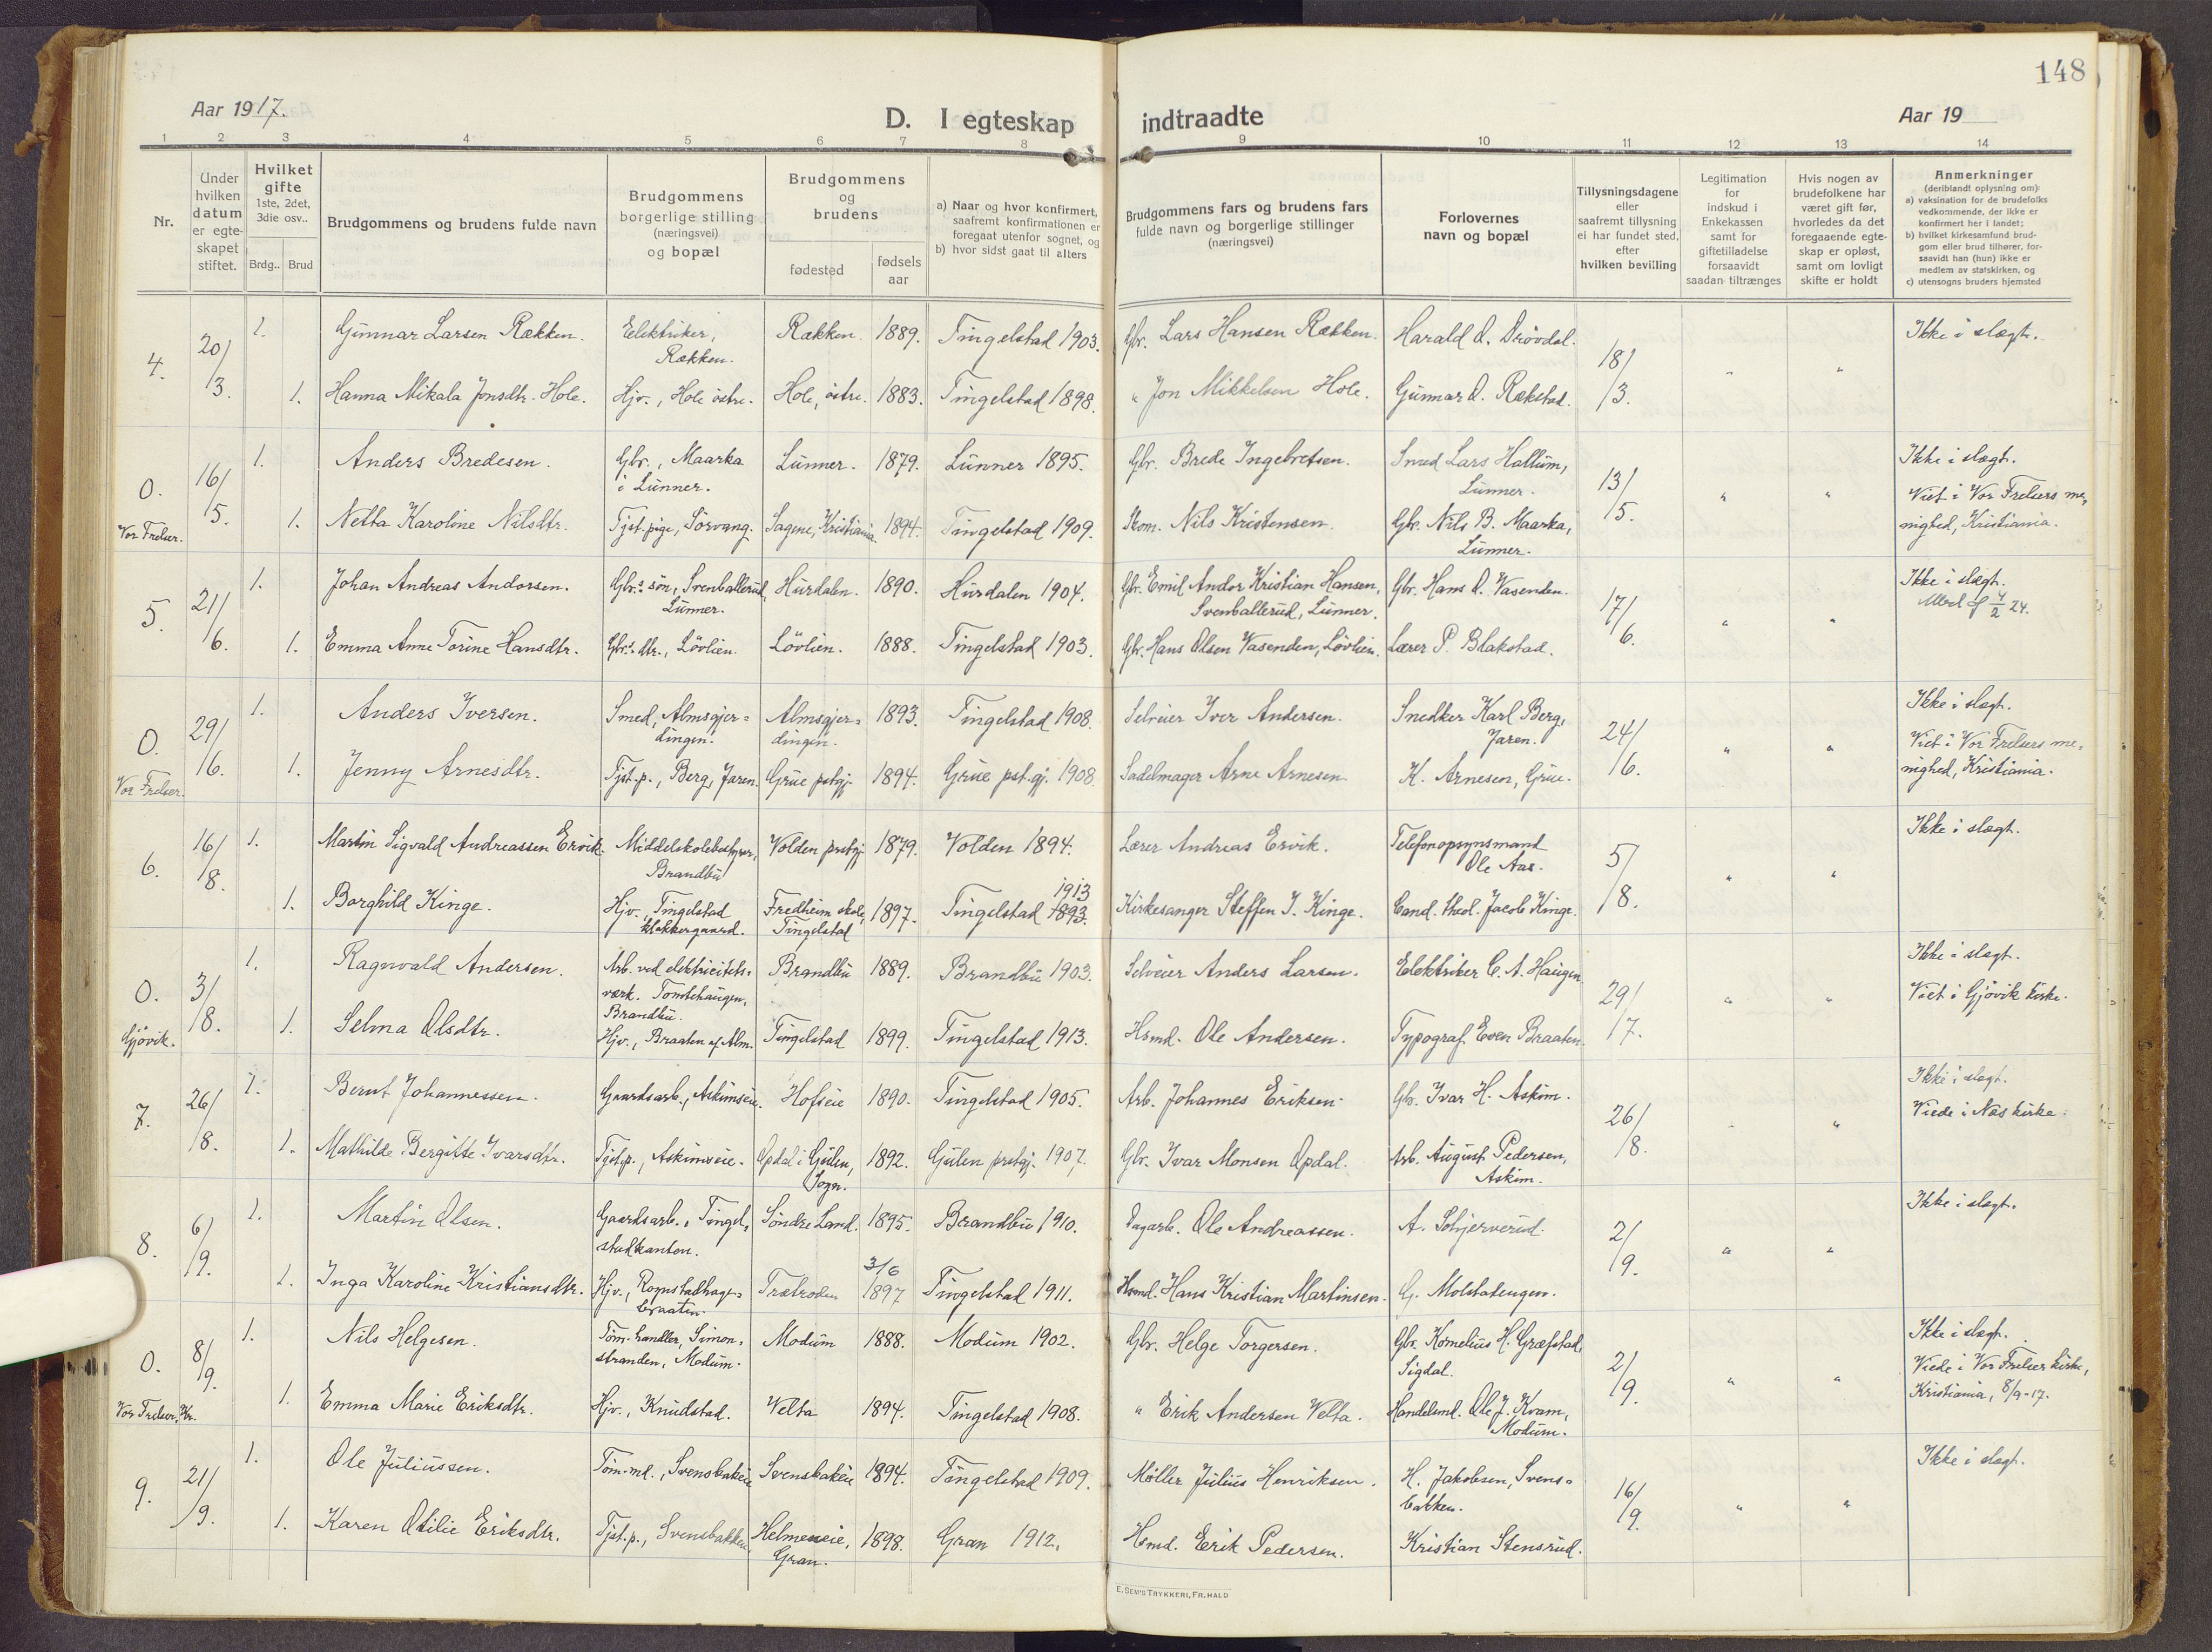 148
Aar 1917.
D. I egteskap indtraadte
Aar 19
1 2 3 4 5 6 7 8 9 10 11 12 13 14
Nr.
Under hvilken datum er egte-skapet stiftet.
Hvilket gifte 1ste, 2det, 3die osv..
Brdg.. Brud
Brudgommens og brudens fulde navn
Brudgommens borgerlige stilling (næringsvei) og bopæl
Brudgommens og brudens
fødested
fødsels aar
a) Naar og hvor konfirmert, saafremt konfirmationen er foregaat utenfor sognet, og
b) hvor sidst gaat til alters
Brudgommens fars og brudens fars fulde navn og borgerlige stillinger (næringsvei)
Forlovernes navn og bopæl
Tillysningsdagene eller saafremt tillysning ei har fundet sted, efter hvilken bevilling
Legitimation for indskud i Enkekassen samt for giftetilladelse forsaavidt saadan tiltrænges
Hvis nogen av brudefolkene har været gift før, hvorledes da det foregaaende egte-skap er opløst, samt om lovligt skifte er holdt
Anmerkninger (deriblandt oplysning om):
a) vaksination for de brudefolks vedkommende, der ikke er konfirmert her i landet;
b) hvilket kirkesamfund brud-gom eller brud tilhører, for-saavidt han (hun) ikke er medlem av statskirken, og
c) utensogns bruders hjemsted
4. 20/3. 1. Gunnar Larsen Rækken. Elektriker, Rækken. Rækken. 1889. Tingelstad 1903. Gbr. Lars Hansen Rækken. Harald O. Drövdal. 18/3. " " Ikke i slægt.
1. Hanna Mikala Jonsdtr. Hole. Hjv., Hole östre. Hole, östre. 1883. Tingelstad 1898. " Jon Mikkelsen Hole. Gunnar O. Rækstad.
0. Vor Frelser. 16/5. 1. Anders Bredesen. Gbr., Maarka i Lunner. Lunner. 1879. Lunner 1895. Gbr. Brede Ingebretsen. Smed Lars Hallum, Lunner. 13/5. " " Ikke i slægt. Viet i Vor Frelsers me-nighed, Kristiania.
1. Netta Karoline Nilsdtr. Tjst. pige, Sörvang. Sagene, Kristiania. 1894. Tingelstad 1909. Skom. Nils Kristensen. Gbr. Nils B. Maarka, Lunner.
5. 21/6. 1. Johan Andreas Andorsen. Gbr.s sön, Svenballerud, Lunner. Hurdalen. 1890. Hurdalen 1904. Gbr. Emil Andor Kristian Hansen, Svenballerud, Lunner. Gbr. Hans O. Vasenden. 17/6. " " Ikke i slægt. 4/2 24.
1. Emma Anne Torine Hansdtr. Gbr.s dtr., Lövlien. Lövlien. 1888. Tingelstad 1903. Gbr. Hans Olsen Vasenden, Lövlien. Lærer P. Blakstad.
0. Vor Frelser. 29/6. 1. Anders Iversen. Smed, Almsgjer-dingen. Almsgjer-dingen. 1893. Tingelstad 1908. Selveier Iver Andersen. Snedker Karl Berg, Jaren. 24/6. " " Ikke i slægt. Viet i Vor Frelsers me-nighed, Kristiania.
1. Jenny Arnesdtr. Tjst. p., Berg, Jaren. Grue pstgj. 1894. Grue pst.gj. 1908. Sadelmager Arne Arnesen K. Arnesen, Grue.
6. 16/8. 1. Martin Sigvald Andreassen Ervik. Middelskolebestyrer, Brandbu Volden prstgj. 1879. Volden 1894. Lærer Andreas Ervik. Telefonopsynsmand Ole Aas. 5/8. " " Ikke i slægt.
1. Borghild Kinge. Hjv., Tingelstad klokkergaard. Fredheim skole, Tingelstad 1897. Tingelstad 1893. 1913 Kirkesanger Steffen J. Kinge. Cand. theol. Jacob Kinge.
0. Gjövik. 3/8. 1. Ragnvald Andersen. Arb. ved elektricitets-værk. Tomtehaugen, Brandbu. Brandbu 1889. Brandbu 1903. Selveier Anders Larsen. Elektriker C. A. Haugen. 29/7. " " Ikke i slægt. Viet i Gjövik kirke.
1. Selma Olsdtr. Hjv., Braaten af Alm. Tingelstad 1899. Tingelstad 1913. Hsmd. Ole Andersen. Typograf Even Braaten.
7. 26/8. 1. Bernt Johannessen. Gaardsarb., Askimseie. Hofseie 1890. Tingelstad 1905. Arb. Johannes Eriksen. Gbr. Ivar H. Askim. 26/8. " " Ikke i slægt. Viede i Næs kirke.
1. Mathilde Bergitte Ivarsdtr. Tjst.p., Askimseie. Opdal i Gulen, Sogn. 1892. Gulen prstgj. 1907. Gbr. Ivar Monsen Opdal. Arb. August Pedersen, Askim.
8. 6/9. 1. Martin Olsen. Gaardsarb., Tingel-stadkanten. Söndre Land. 1895. Brandbu 1910. Dagarb. Ole Andreassen. A. Schjerverud. 2/9. " " Ikke i slægt.
1. Inga Karoline Kristiansdtr. Hjv., Rognstadhage-braaten. Trætroden 3/6 1897 Tingelstad 1911. Hsmd. Hans Kristian Martinsen. G. Molstadengen.
0. Vor Frelser, Kr. 8/9. 1. Nils Helgesen. Töm. handler, Simon-stranden, Modum. Modum 1888. Modum 1902. Gbr. Helge Torgersen. Gbr. Kornelius H. Græfstad, Sigdal. 2/9. " " Ikke i slægt. Viede i Vor Frelser kirke, Kristiania, 8/9-17.
1. Emma Marie Eriksdtr. Hjv., Knudstad. Velta 1894. Tingelstad 1908. " Erik Andersen Velta. Handelsmd. Ole J. Kvam, Modum.
9. 21/9. 1. Ole Juliussen. Töm.md., Svensbakeie Svensbakeie 1894. Tingelstad 1909. Møller Julius Henriksen. H. Jakobsen, Svens-bakken. 16/9. " " Ikke i slægt.
1. Karen Otilie Eriksdtr. Tjst.p., Svensbakken. Helmeneie, Gran. 1898. Gran 1912. Hsmd. Erik Pedersen. Kristian Stensrud.
E. SEM'S TRYKKERI, FR. HALD